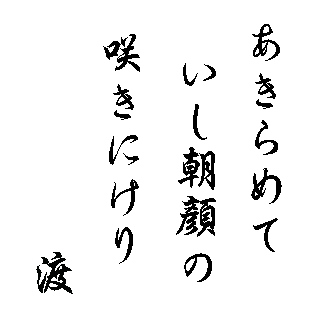 あきらめて
いし朝顔の
咲きにけり
渡